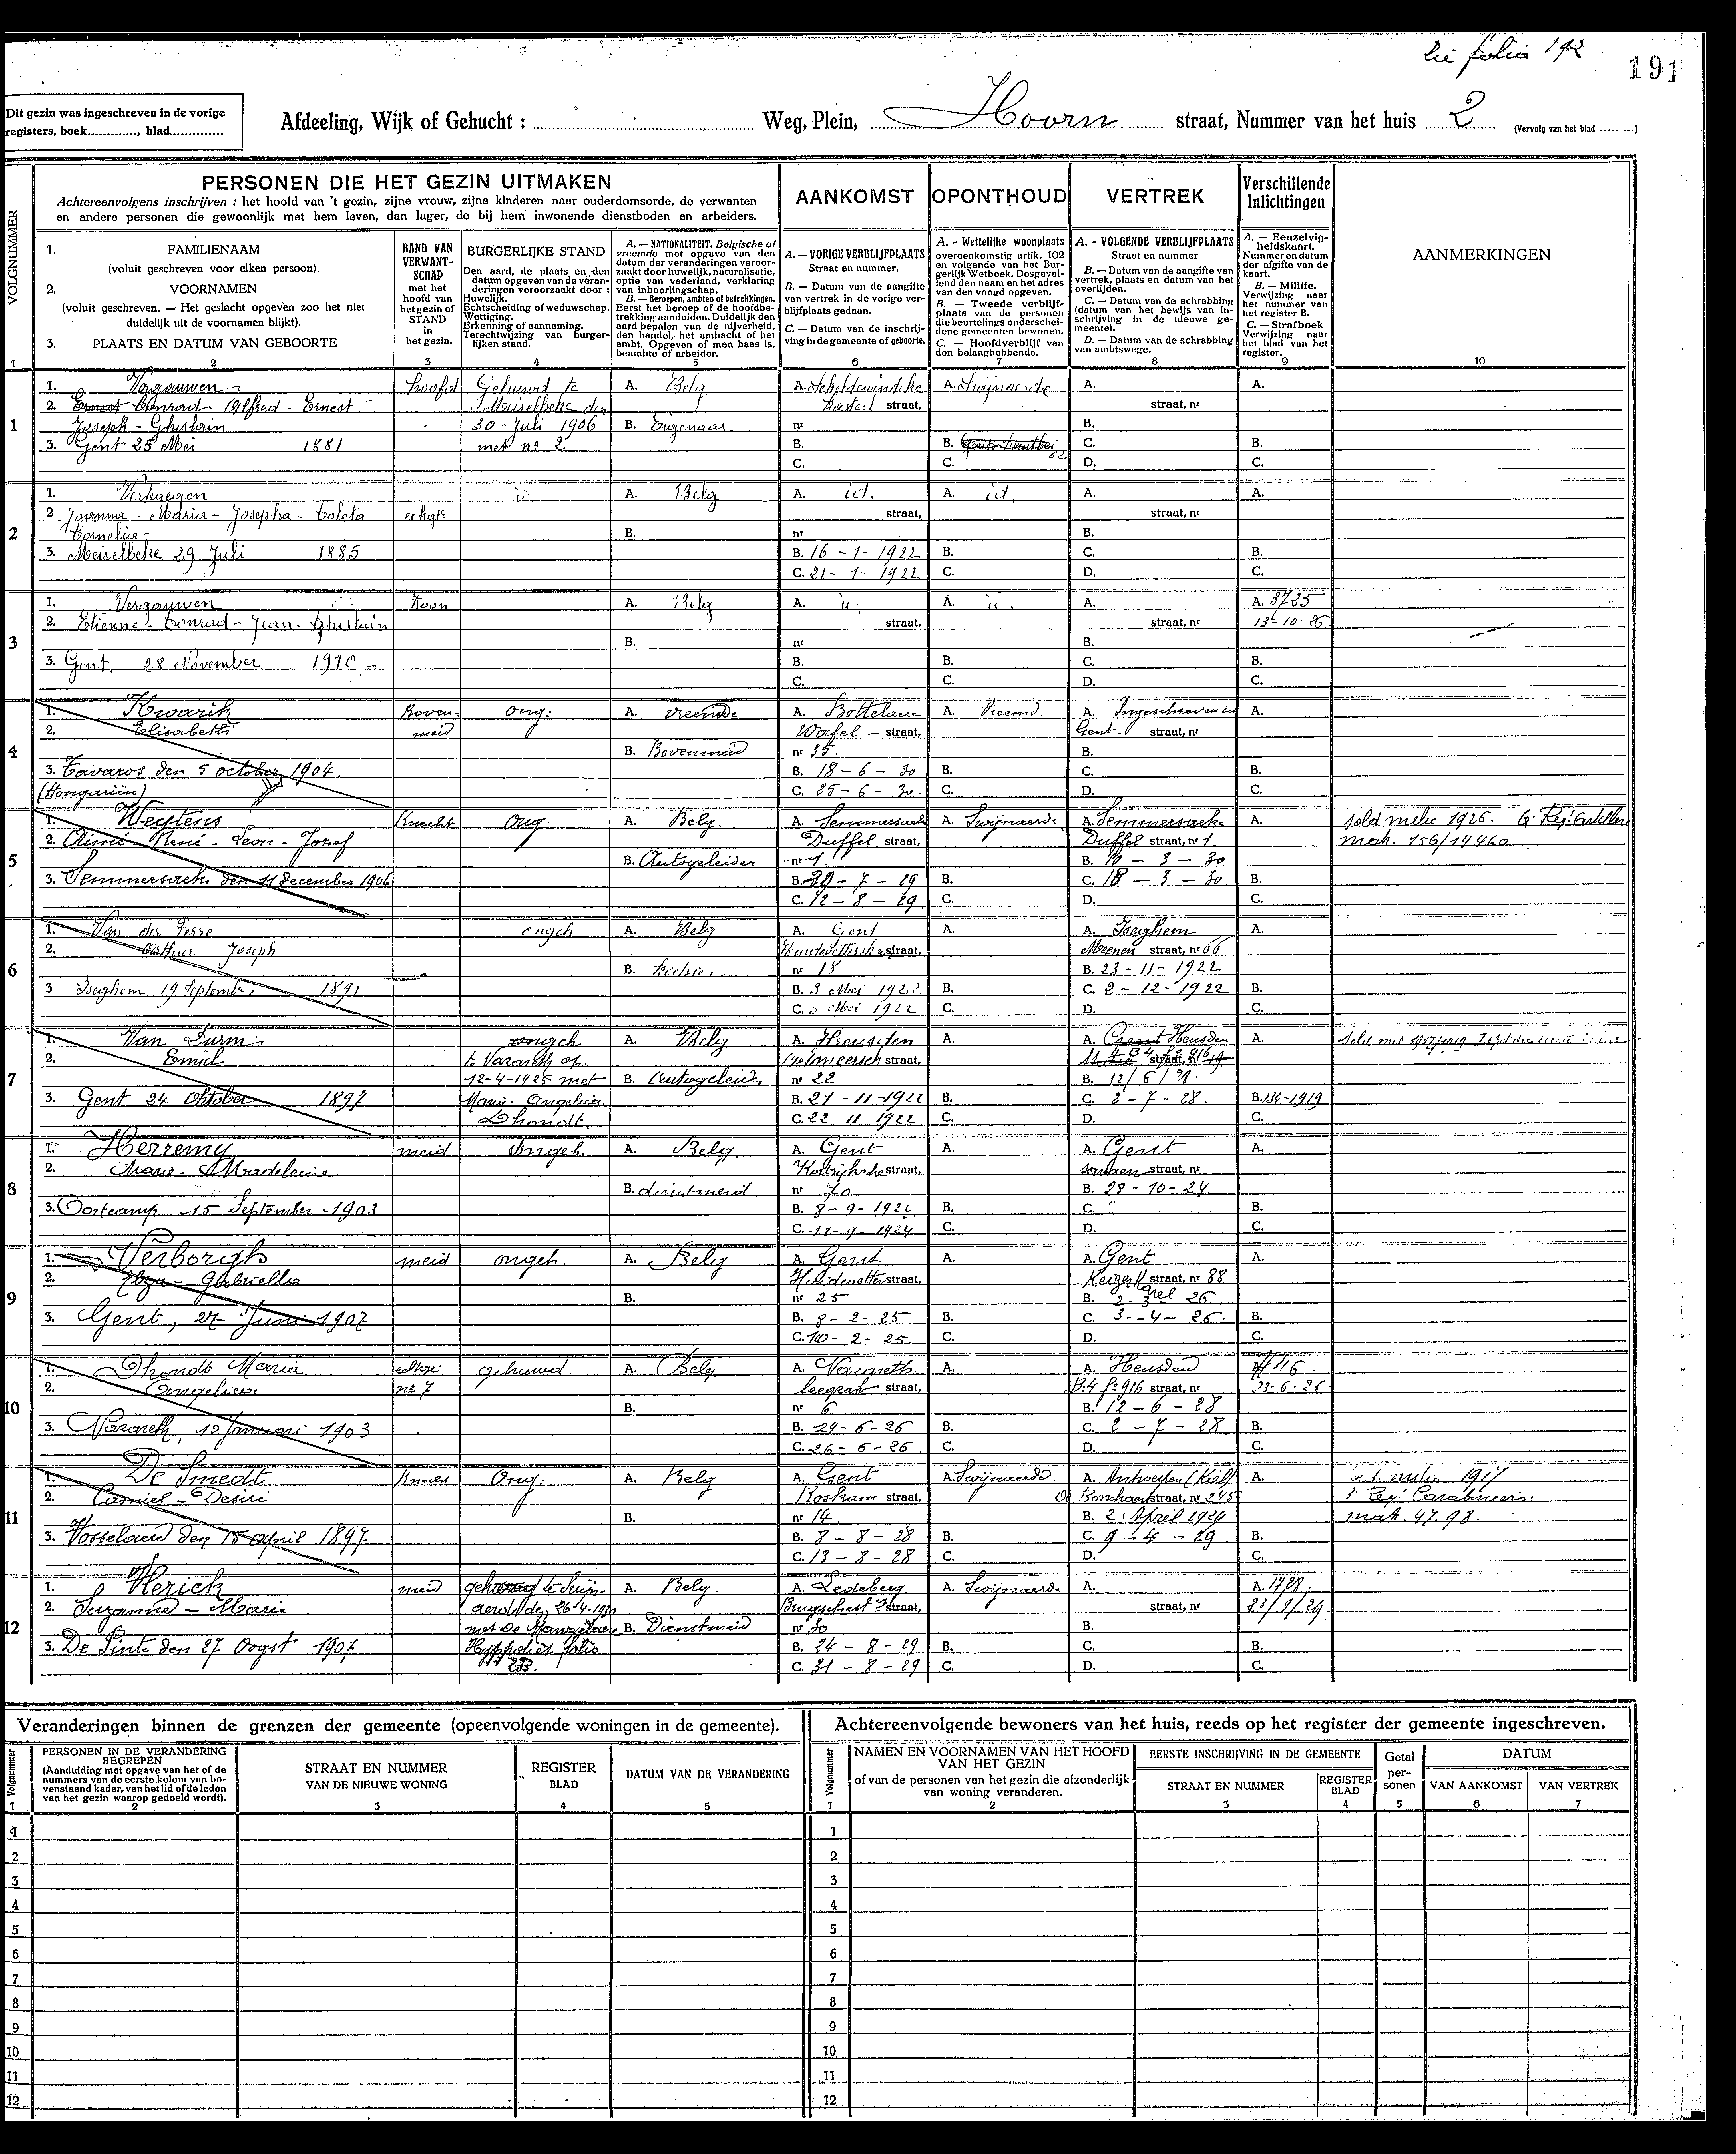 zie folio 192
191
Dit gezin was ingeschreven in de vorige
registers, boek............, blad..............
Afdeeling, Wijk of Gehucht : Weg, Plein, Hoorn straat, Nummer van het huis 2 (Vervolg van het blad .........)
VOLGNUMMER
PERSONEN DIE HET GEZIN UITMAKEN
Achtereenvolgens inschrijven : het hoofd van 't gezin, zijne vrouw, zijne kinderen naar ouderdomsorde, de verwanten
en andere personen die gewoonlijk met hem leven, dan lager, de bij hem inwonende dienstboden en arbeiders.
AANKOMST
OPONTHOUD
VERTREK
Verschillende
Inlichtingen
AANMERKINGEN
1. FAMILIENAAM
(voluit geschreven voor elken persoon).
2. VOORNAMEN
(voluit geschreven. — Het geslacht opgeven zoo het niet
duidelijk uit de voornamen blijkt).
3. PLAATS EN DATUM VAN GEBOORTE
BAND VAN
VERWANT-
SCHAP
met het
hoofd van
het gezin of
STAND
in
het gezin.
BURGERLIJKE STAND
Den aard, de plaats en den
datum opgeven van de veran-
deringen veroorzaakt door :
Huwelijk.
Echtscheiding of weduwschap.
Wettiging.
Erkenning of aanneming.
Terechtwijzing van burger-
lijken stand.
A. — NATIONALITEIT. Belgische of
vreemde met opgave van den
datum der veranderingen veroor-
zaakt door huwelijk, naturalisatie,
optie van vaderland, verklaring
van inboorlingschap.
B. — Beroepen, ambten of betrekkingen.
Eerst het beroep of de hoofdbe-
trekking aanduiden. Duidelijk den
aard bepalen van de nijverheid,
den handel, het ambacht of het
ambt. Opgeven of men baas is,
beambte of arbeider.
A. — VORIGE VERBLIJFPLAATS
Straat en nummer.
B. — Datum van de aangifte
van vertrek in de vorige ver-
blijfplaats gedaan.
C. — Datum van de inschrij-
ving in de gemeente of geboorte.
A. - Wettelijke woonplaats
overeenkomstig artik. 102
en volgende van het Bur-
gerlijk Wetboek. Desgeval-
lend den naam en het adres
van den voogd opgeven.
B. — Tweede verblijf-
plaats van de personen
die beurtelings onderschei-
dene gemeenten bewonen.
C. — Hoofdverblijf van
den belanghebbende.
A. - VOLGENDE VERBLIJFPLAATS
Straat en nummer
B. — Datum van de aangifte van
vertrek, plaats en datum van het
overlijden.
C. — Datum van de schrabbing
(datum van het bewijs van in-
schrijving in de nieuwe ge-
meente).
D. — Datum van de schrabbing
van ambtswege.
A. — Eenzelvig-
heldskaart.
Nummer en datum
der afgifte van de
kaart.
B. — Militie.
Verwijzing naar
het nummer van
het register B.
C. — Strafboek
Verwijzing naar
het blad van het
register.
1 2 3 4 5 6 7 8 9 10
1
1. Vergauwen Hoofd Gehuwd te A. Belg A. Scheldewindeke A. Swijnaerde A. A.
2. Ernest Conrad - Alfred - Ernest Meirelbeke den Kasteel straat, straat, nr
Joseph - Ghislain 30 - Juli 1906 B. Eigenaar nr B.
3. Gent 25 Mei 1881 met n° 2 B. B. C. B.
C. C. D. C.
2
1. Verhaegen id A. Belg A. id. A. id A. A.
2 Joanna - Maria - Josepha - Coleta echgte straat, straat, nr
Cornelia - B. nr B.
3. Meirelbeke 29 Juli 1885 B. 16 - 1 - 1922 B. C. B.
C. 21 - 1 - 1922 C. D. C.
3
1. Vergauwen Zoon A. Belg A. id. A. id. A. A. 3725
2. Etienne - Conrad - Jean - Ghislain straat, straat, nr 13-10-26
B. nr B.
3. Gent. 28 November 1910 - B. B. C. B.
C. C. D. C.
4
1. Kwarik Boven- ong: A. vreemde A. Bottelare A. Vreemd. A. Ingeschreven in A.
2. Elisabeth meid Wafel - straat, Gent. straat, nr
B. Bovenmeid nr 35. B.
3. Tavaros den 5 october 1904. B. 18 - 6 - 30 B. C. B.
(Hongarien) C. 25 - 6 - 30. C. D. C.
5
1. Weytens Knecht Ong. A. Belg. A. Semmersaeke A. Swijnaerde A. Semmersaeke A. sold melie 1926. 6. Reg: Artillerie
2. Aimé - René - Leon - Jozef Duffel straat, Duffel straat, nr 1. mak. 156/14460
B. Autogeleider nr 1. B. 10 - 3 - 30
3. Semmersaeke den 11 december 1906 B. 29 - 7 - 29 B. C. 18 - 3 - 30. B.
C. 12 - 8 - 29 C. D. C.
6
1. Van der Perre ongeh A. Belg A. Gent A. A. Iseghem A.
2. Arthur Joseph straat, Meenen straat, nr 66
B. nr 18 B. 23 - 11 - 1922
3 Iseghem 19 September 1891 B. 3 Mei 1922 B. C. 2 - 12 - 1922 B.
C. 5 Mei 1922 C. D. C.
7
1. Van Durm ongeh A. Belg A. Heusden A. Gent Heusden A.
2. Emiel te Nazareth op straat, B4 f° 916 straat, nr
12-4-1926 met B. Autogeleider nr 22 B. 12/6/28.
3. Gent 24 Oktober 1897 Marie - Angelica B. 21 - 11 - 1922 B. C. 2 - 7 - 28. B. 134-1919
Dhondt. C. 22 11 1922 C. D. C.
8
1. Herremy meid Ongeh. A. Belg. A. Gent A. A. Gent A.
2. Marie - Madeleine Kortrijksche straat, straat, nr
B. dienstmeid nr 70 B. 28 - 10 - 24.
3. Oostcamp 15 September - 1903 B. 8 - 9 - 1924. B. C. B.
C. 11 - 9 - 1924 C. D. C.
9
1. Verborgh meid ongeh. A. Belg A. Gent. A. A. Gent A.
2. Elza - Gabriella Huidevetter straat, Keizer Karel straat, nr 88
B. nr 25 B. 2 - 3 - 26
3. Gent, 27 Juni 1907 B. 8 - 2 - 25 B. C. 3 - 4 - 26. B.
C. 10 - 2 - 25. C. D. C.
10
1. Dhondt Maria echtge gehuwd A. Belg A. Nazareth A. A. Heusden A. 4446
2. Angelica n° 7 straat, B.4 f° 916 straat, nr 23-6-26
B. nr 6 B. 12 - 6 - 28
3. Nazareth, 12 Januari 1903 B. 24 - 6 - 26 B. C. 2 - 7 - 28 B.
C. 26 - 6 - 26 C. D. C.
11
1. De Smedt Knecht Ong. A. Belg A. Gent A. Swijnaerde. A. Antwerpen (Kiel) A. milie 1917
2. Camiel - Desiré Roskam straat, straat, nr 245 3. Reg: Carabiniers.
B. nr 14. B. 2 April 1929 mak. 47.93.
3. Vosselaere den 15 April 1897 B. 8 - 8 - 28 B. C. 9 - 4 - 29 B.
C. 13 - 8 - 28 C. D. C.
12
1. Herick meid gehuwd te Swijn- A. Belg. A. Ledeberg. A. Swijnaerde A. A. 1728.
2. Suzanna - Marie aerde den 26-4-1930 straat, straat, nr 23/9/29
met De B. Dienstmeid nr 30 B.
3. De Pinte den 27 Oogst 1907 Hyppoliet folio B. 24 - 8 - 29 B. C. B.
233. C. 31 - 8 - 29 C. D. C.
Veranderingen binnen de grenzen der gemeente (opeenvolgende woningen in de gemeente).
Volgnummer
PERSONEN IN DE VERANDERING
BEGREPEN
(Aanduiding met opgave van het of de
nummers van de eerste kolom van bo-
venstaand kader, van het lid of de leden
van het gezin waarop gedoeld wordt).
STRAAT EN NUMMER
VAN DE NIEUWE WONING
REGISTER
BLAD
DATUM VAN DE VERANDERING
1 2 3 4 5
1
2
3
4
5
6
7
8
9
10
11
12
Achtereenvolgende bewoners van het huis, reeds op het register der gemeente ingeschreven.
Volgnummer
NAMEN EN VOORNAMEN VAN HET HOOFD
VAN HET GEZIN
of van de personen van het gezin die afzonderlijk
van woning veranderen.
EERSTE INSCHRIJVING IN DE GEMEENTE
STRAAT EN NUMMER
REGISTER
BLAD
Getal
per-
sonen
DATUM
VAN AANKOMST
VAN VERTREK
1 2 3 4 5 6 7
1
2
3
4
5
6
7
8
9
10
11
12